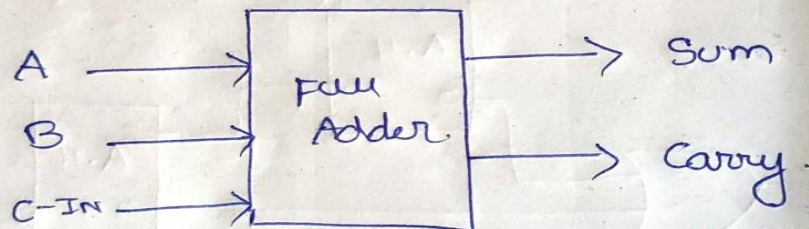 A
B
C-IN
Full
Adder.
Sum
Carry.